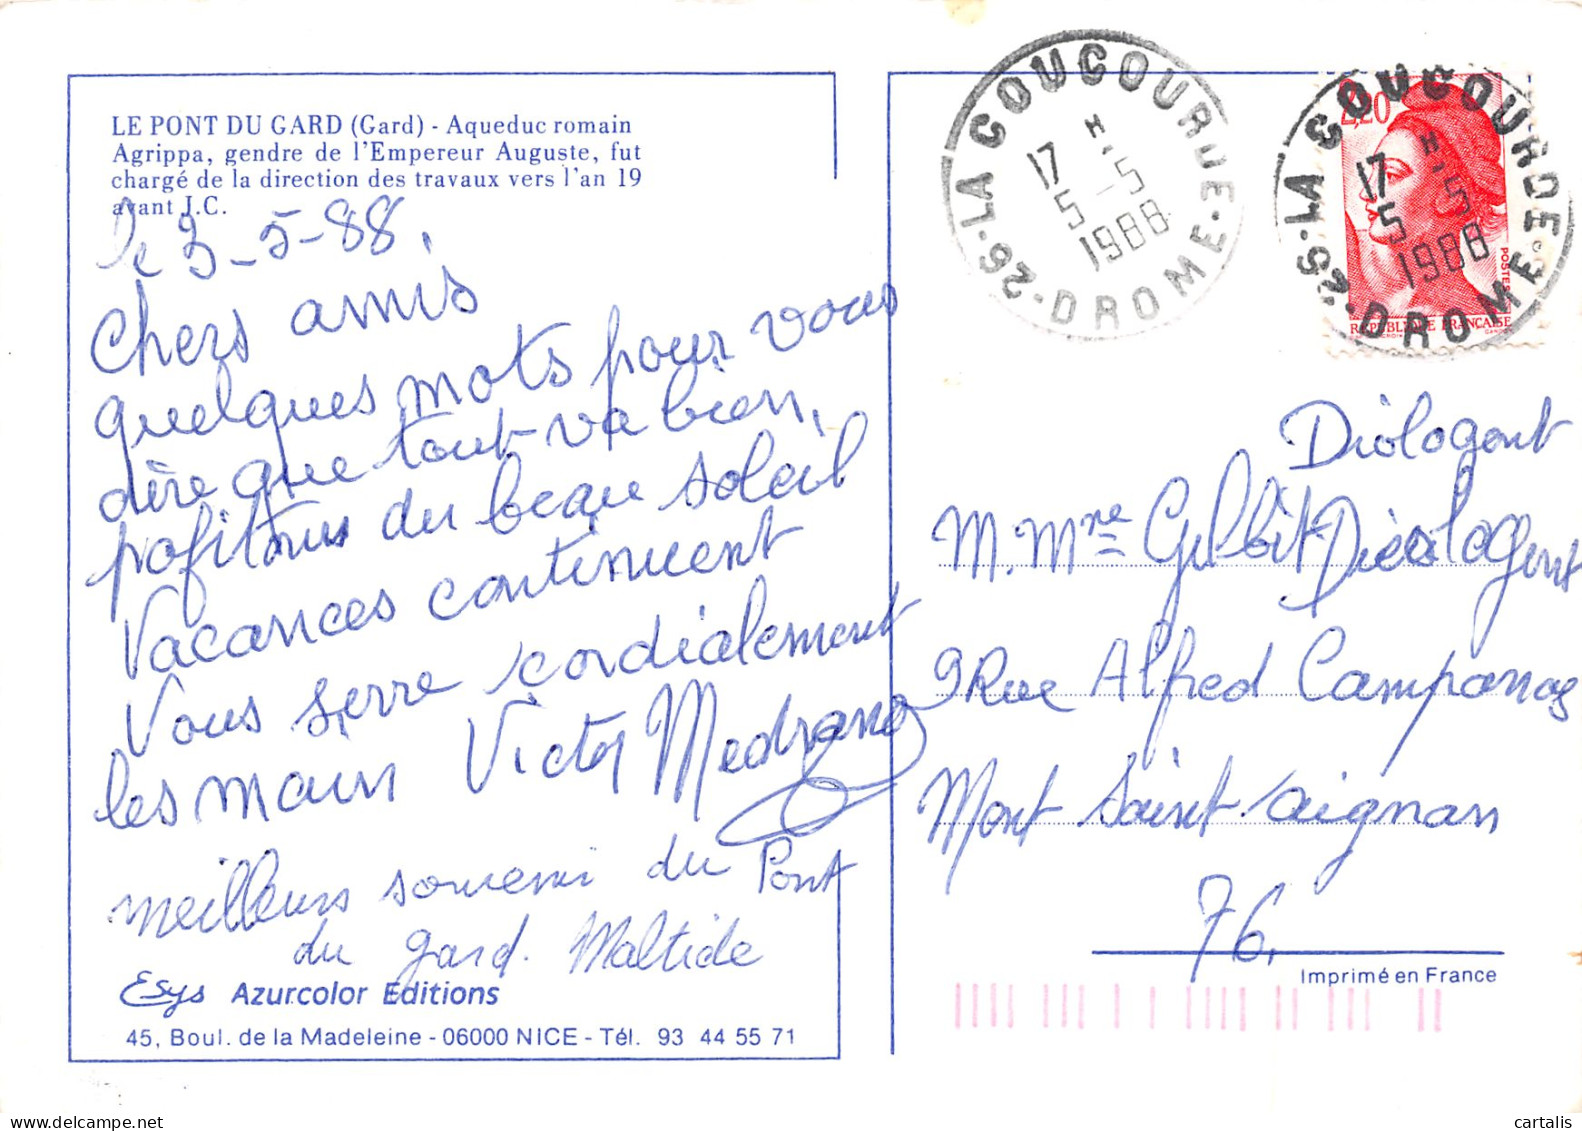 LE PONT DU GARD (Gard) - Aqueduc romain
Agrippa, gendre de l'Empereur Auguste, fut
chargé de la direction des travaux vers l'an 19
avant J.C.
le 3-5-88.
Chers amis
quelques mots pour vous
dire que tout va bien,
pofitons du beau soleil
Vacances continuent
Vous serre cordialement
les main Victor Medrano
meilleurs souvenir du Pont
du gard. Maltide
Esys Azurcolor Editions
45, Boul. de la Madeleine - 06000 NICE - Tél. 93 44 55 71
26 · LA COUCOURDE · DROME
17 H.
5 - 5
1988
26 · LA COUCOURDE · DROME
17 H.
5 - 5
1988
2,20
POSTES
REPUBLIQUE FRANÇAISE
Diologent
M. Mme Gilbert Diologent
9 Rue Alfred Campanas
Mont Saint aignan
76.
Imprimé en France
cartalis